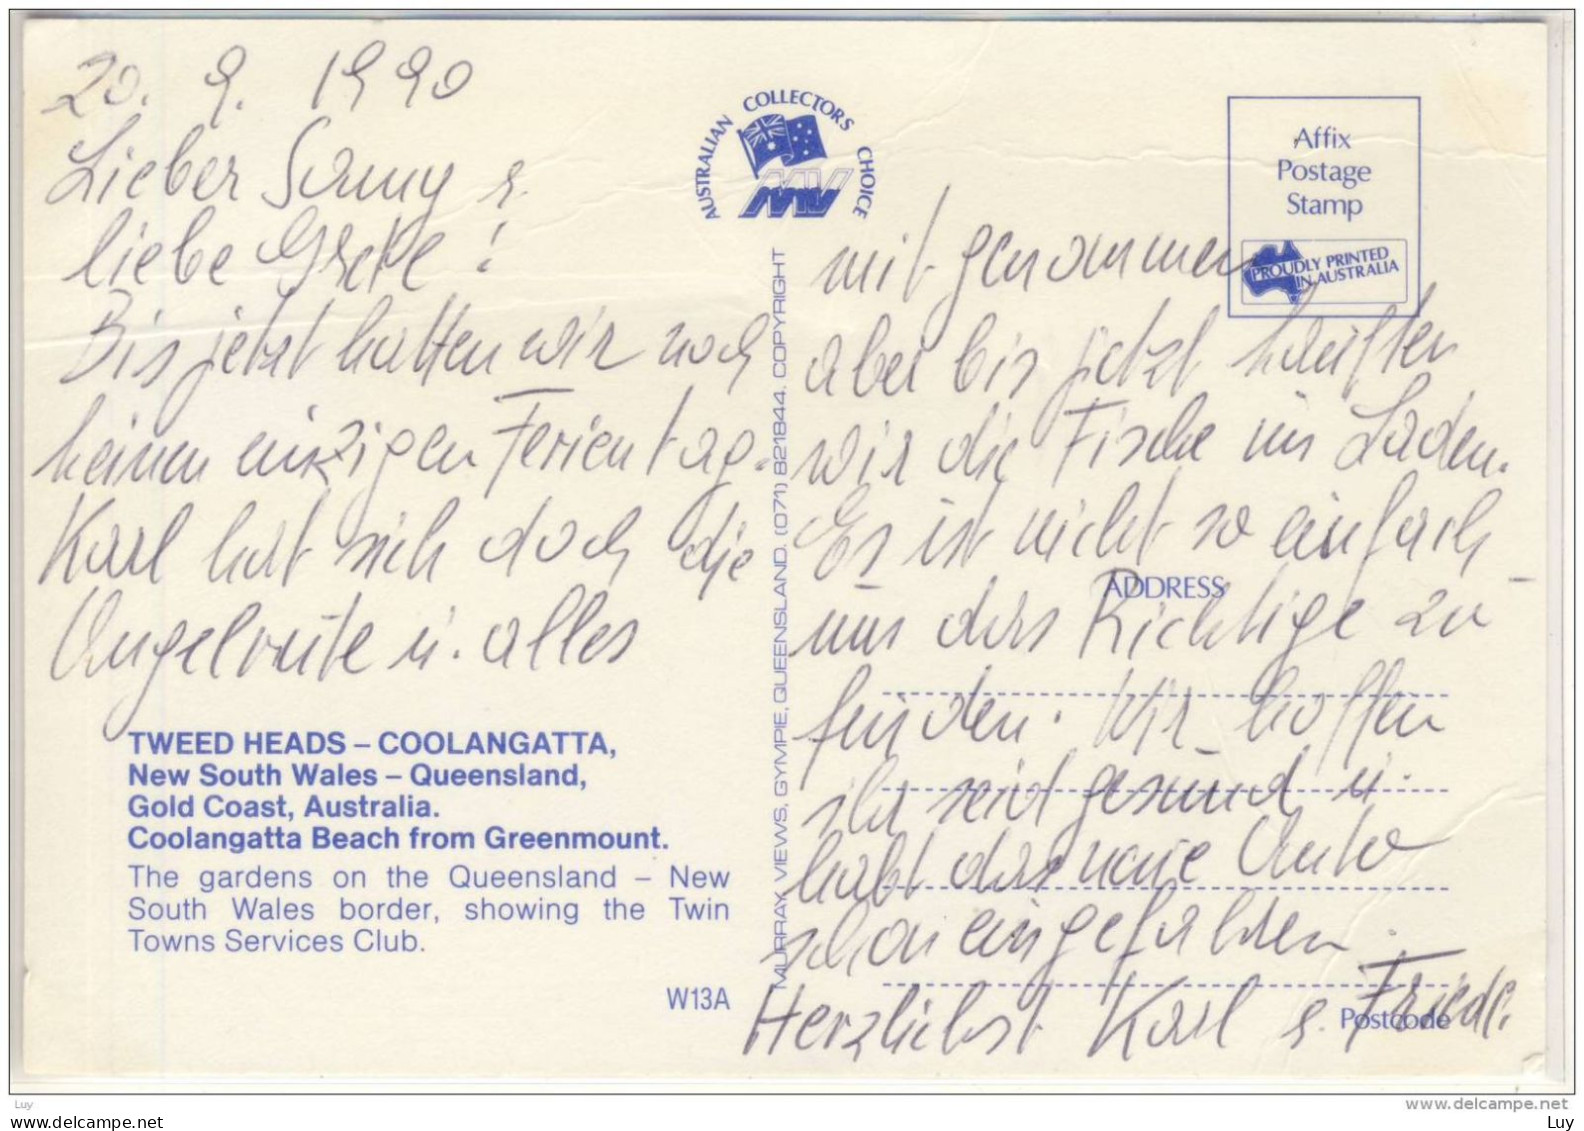 20. 9. 1990
Lieber Sonny &
liebe Grete!
Bis jetzt hatten wir noch
keinen einzigen Ferientag.
Karl hat sich doch die
Angelroute u. alles
TWEED HEADS – COOLANGATTA,
New South Wales – Queensland,
Gold Coast, Australia.
Coolangatta Beach from Greenmount.
The gardens on the Queensland – New
South Wales border, showing the Twin
Towns Services Club.
W13A
AUSTRALIAN COLLECTORS CHOICE
MV
MURRAY VIEWS, GYMPIE, QUEENSLAND. (071) 821844. COPYRIGHT
Affix
Postage
Stamp
PROUDLY PRINTED
IN AUSTRALIA
mit genommen
aber bis jetzt kauften
wir die Fische im Laden.
Es ist nicht so einfach
ADDRESS
um das Richtige zu
finden. Wir hoffen
ihr seid gesund u.
habt das neue Auto
schon eingefahren.
Herzlichst Karl & Friedl.
Postcode
Luy
www.delcampe.net
www.delcampe.com
Luy